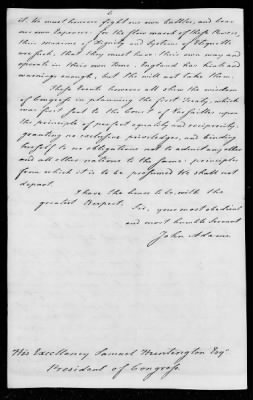 it. We must however fight our own Battles, and bear
our own Expences: for the slow march of these Powers,
their maxims of Dignity and Systems of Etiquette
are such, that they must have their own way and
operate in their own time. England has hints and
warnings enough, but she will not take them.
These Events however all shew the wisdom
of Congress in planning the first Treaty, which
was first sent to the Court of Versailles upon
the principle of perfect equality and reciprocity,
granting no exclusive priviledges, and binding
herself to no obligations not to admit any other
and all other nations to the same: principles
from which it is to be presumed We shall not
depart.
I have the honor to be, with the
greatest Respect,
Sir, your most obedient
and most humble Servant
John Adams.
His Excellency Samuel Huntington Esqr.
President of Congress.